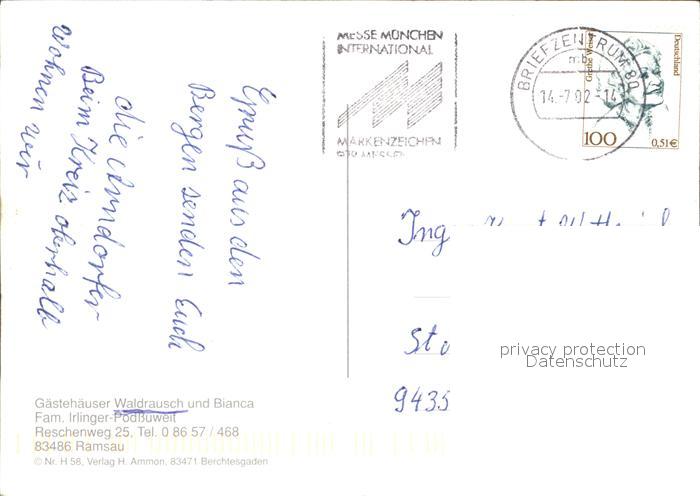 Gruß aus den
Bergen senden Euch
die Arndorfer
Beim Kreiz oberhalb
wohnen wir
MESSE MÜNCHEN
INTERNATIONAL
MARKENZEICHEN
DER MESSEN
BRIEFZENTRUM 80
mb
14.-7.02-14
Grethe Weiser
Deutschland
100
0,51€
Ing
St
9435
privacy protection
Datenschutz
Gästehäuser Waldrausch und Bianca
Fam. Irlinger-Podßuweit
Reschenweg 25, Tel. 0 86 57 / 468
83486 Ramsau
© Nr. H 58, Verlag H. Ammon, 83471 Berchtesgaden